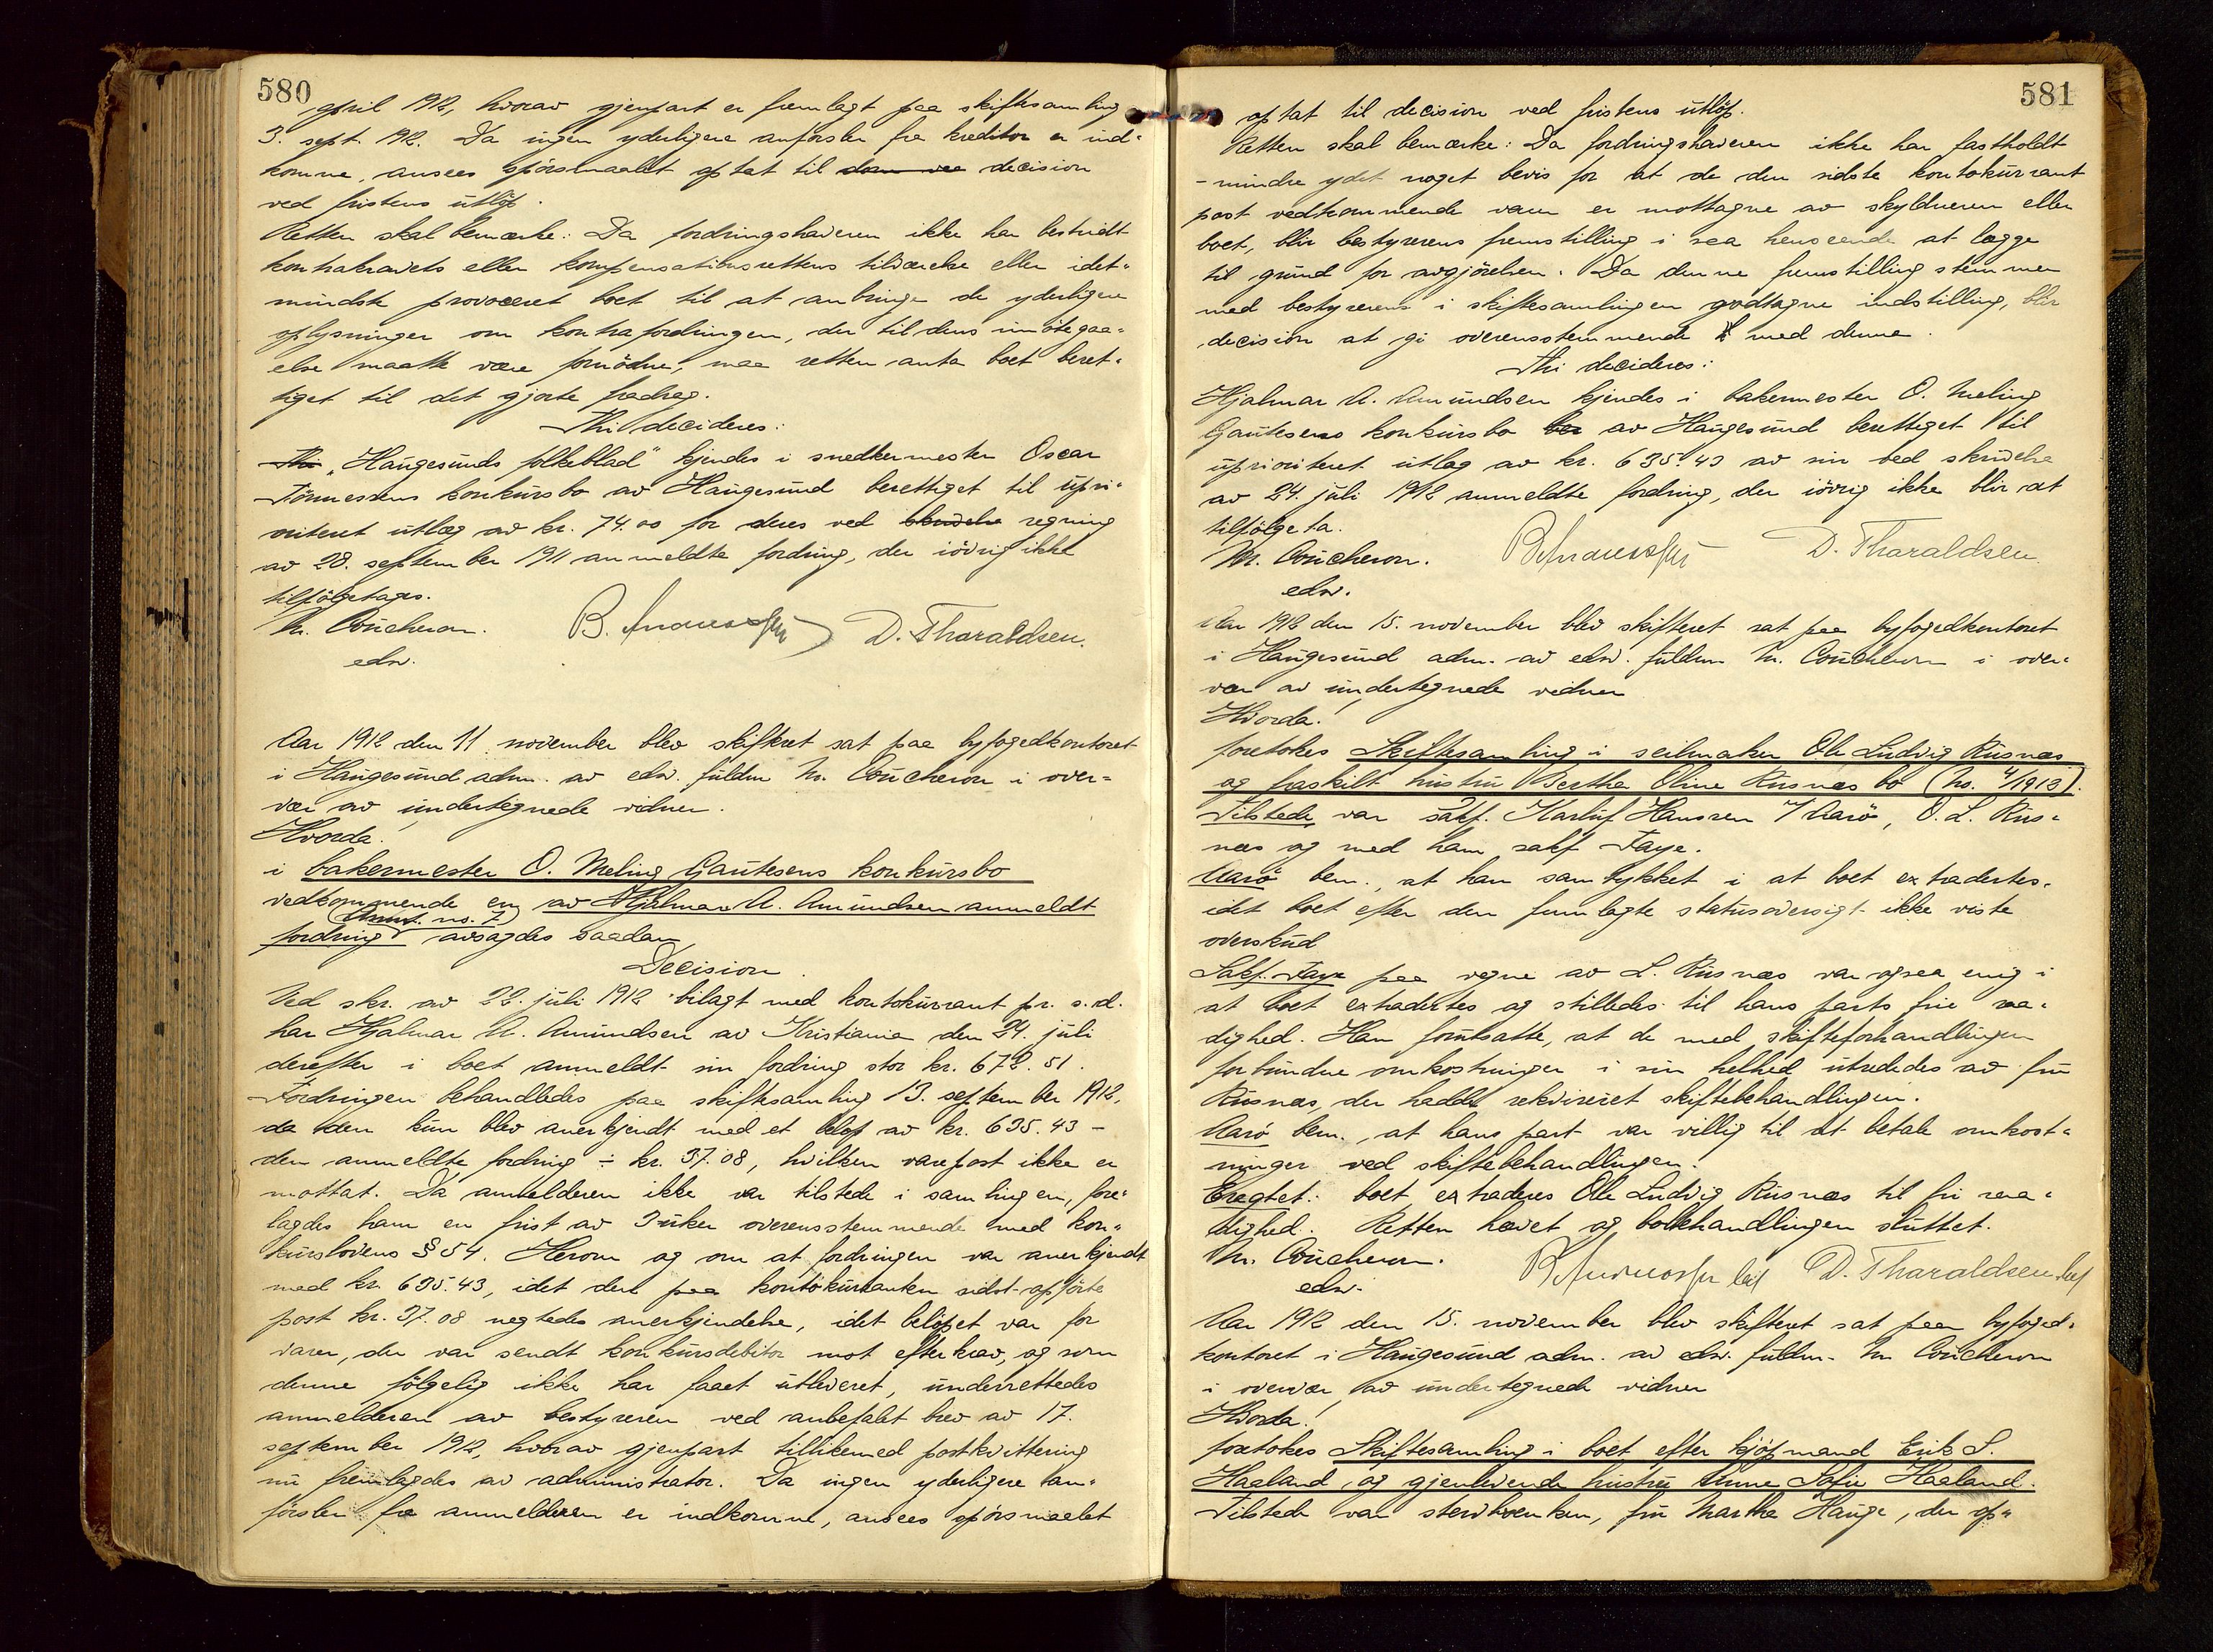 580
april 1912, hvorav gjenpart er fremlagt paa skiftesamling
3. sept. 1912. Da ingen yderligere anførsler fra kreditor er ind-
komne, ansees spörsmaalet optat til decision
ved fristens utlöp.
Retten skal bemærke: Da fordringshaveren ikke har bestridt
kontrakravets eller kompensationsrettens tilværelse eller idet-
mindste provoceret boet til at anbringe de yderligere
oplysninger om kontrafordringen, der til dens imötegaa-
else maatte være fornödne, maa retten anta boet beret-
tiget til det gjorte fradrag.
Thi decideres:
Thi "Haugesunds folkeblad" kjendes i snedkermester Oscar
Tönnessens konkursbo av Haugesund berettiget til upri-
oritert utlæg av kr. 74.00 for deres ved skrivelse regning
av 28. september 1911 anmeldte fordring, der iövrig ikke
tilfölgetages.
M. Coucheron.
edsv.
D. Tharaldsen.
Aar 1912 den 11. november blev skifteret sat paa byfogedkontoret
i Haugesund adm. av edsv. fuldm M. Coucheron i over-
vær av undertegnede vidner.
Hvorda!
i bakermester O. Meling Gautesens konkursbo
vedkommende en av Hjalmar A. Amundsen anmeldt
(Anm. no. 7)
fordring avsagdes saadan
Decision.
Ved skr. av 22. juli 1912 bilagt med kontokurrant pr. s. d.
har Hjalmar A. Amundsen av Kristiania den 24. juli
derefter i boet anmeldt sin fordring stor kr. 672.51.
Fordringen behandledes paa skiftesamling 13. september 1912,
da den kun blev anerkjendt med et belöp av kr. 635.43 -
den anmeldte fordring ÷ kr. 37.08, hvilken varepost ikke er
mottat. Da anmelderen ikke var tilstede i samlingen, fore-
lagdes ham en frist av 3 uker overensstemmende med kon-
kurslovens § 54. Herom og om at fordringen var anerkjendt
med kr. 635.43, idet den paa kontokuranten sidst opförte
post kr. 37.08 negtedes anerkjendelse, idet belöpet var for
varer, der var sendt konkursdebitor mot efterkrav, og som
denne fölgelig ikke har faaet utleveret, underrettedes
anmelderen av bestyreren ved anbefalet brev av 17.
september 1912, hvorav gjenpart tillikemed postkvittering
nu fremlagdes av administrator. Da ingen yderligere an-
försler fra anmelderen er indkomne, ansees spörsmaalet
581
optat til decision ved fristens utlöp.
Retten skal bemærke: Da fordringshaveren ikke har fastholdt
-mindre ydet noget bevis for at de den sidste kontokurrant
post vedkommende varer er mottagne av skyldneren eller
boet, blir bestyrerens fremstilling i saa henseende at lægge
til grund for avgjörelsen. Da denne fremstilling stemmer
med bestyrerens i skiftesamlingen godtagne indstilling, blir
decision at gi overensstemmende med denne.
Thi decideres:
Hjalmar A. Amundsen kjendes i bakermester O. Meling
Gautesens konkursbo av Haugesund berettiget til
uprioriteret utlæg av kr. 635.43 av sin ved skrivelse
av 24. juli 1912 anmeldte fordring, der iövrig ikke blir at
tilfölge ta.
M. Coucheron.
edsv.
D. Tharaldsen
Aar 1912 den 15. november blev skifteret sat paa byfogedkontoret
i Haugesund adm. av edsv. fuldm M. Coucheron i over-
vær av undertegnede vidner
Hvorda!
foretokes Skiftesamling i seilmaker Ole Ludvig Risnæs
og fraskilt hustru Berthe Oline Risnæs bo (No. 4/1913).
Tilstede var sakf. Karluf Hanssen / Aarö, O. L. Ris-
næs og med ham sakf Faye.
Aarö bem., at han samtykket i at boet extradertes,
idet boet efter den fremlagte statusoversigt ikke viste
overskud
Sakf. Faye paa vegne av L. Risnæs var ogsaa enig i
at boet extradertes og stilledes til hans parts frie raa-
dighed. Han forutsatte, at de med skifteforhandlingen
forbundne omkostninger i sin helhed utrededes av fru
Risnæs, der hadde rekvireret skiftebehandlingen.
Aarö bem., at hans part var villig til at betale omkost-
ninger ved skiftebehandlingen.
Eragtet: boet extraderes Ole Ludvig Risnæs til fri raa-
dighed. Retten hævet og bobehandlingen sluttet.
M. Coucheron.
edsv.
D. Tharaldsen
Aar 1912 den 15. november blev skifteret sat paa byfoged-
kontoret i Haugesund adm. av edsv. fuldm. M Coucheron
i overvær av undertegnede vidner
Hvorda!
foretokes Skiftesamling i boet efter kjöpmand Erik S.
Haaland, og gjenlevende hustru Anne Sofie Haaland.
Tilstede var stervboenken, fru Marthe Hauge, der op-